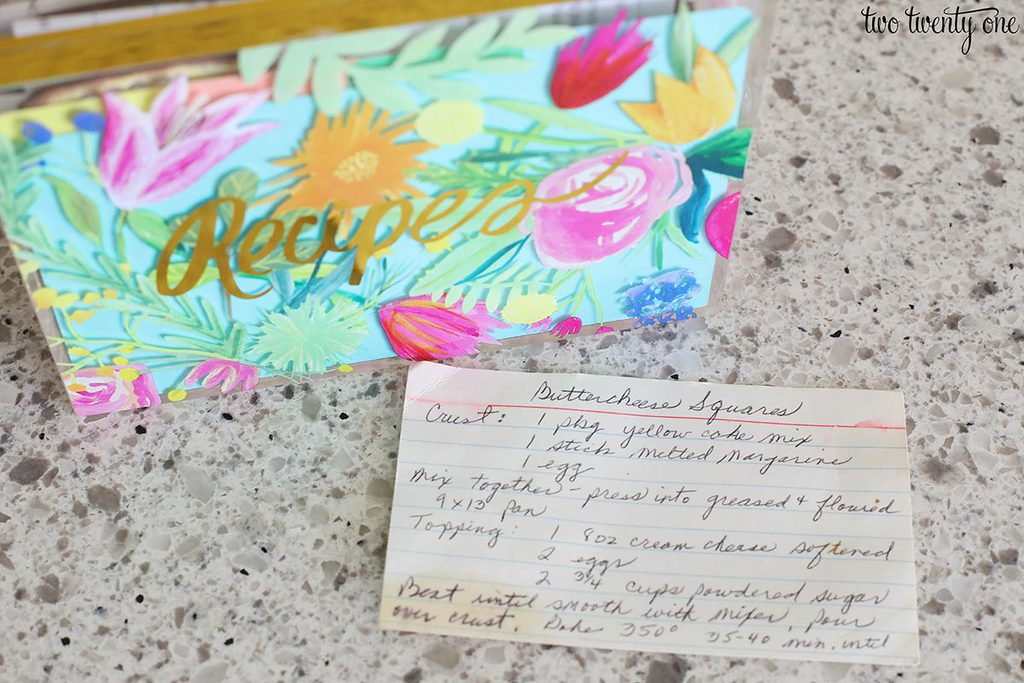 two twenty one
Recipes
Buttercheese Squares
Crust: 1 pkg yellow cake mix
1 stick melted Margarine
1 egg
Mix together - press into greased + floured
9x13 pan
Topping: 1 8oz cream cheese softened
2 eggs
2 3/4 cups powdered sugar
Beat until smooth with mixer, pour
over crust. Bake 350° 35-40 min. until